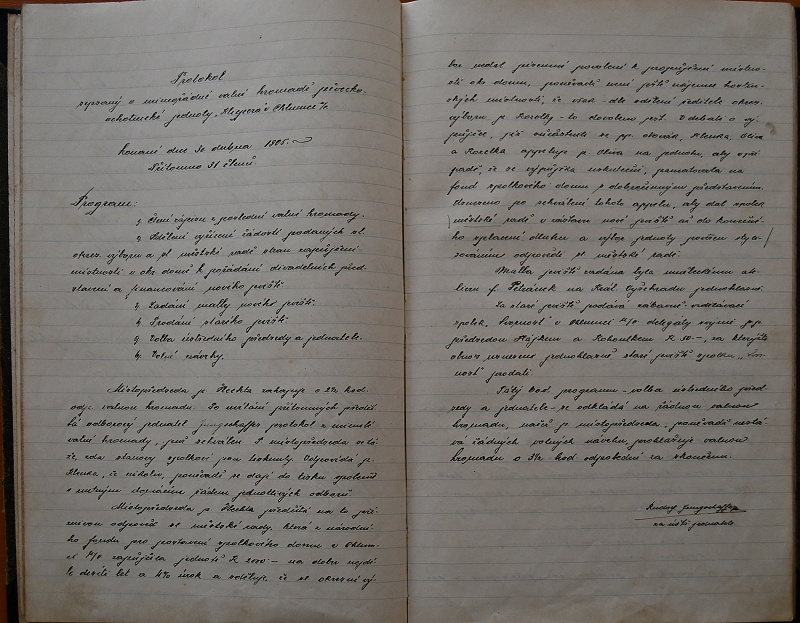 Protokol
sepsaný o mimořádné valné hromadě pěvecko-
ochotnické jednoty „Klicpera v Chlumci n/C
konané dne 30 dubna 1905.
Přítomno 31 členů.
Program:
1, Čtení zápisu z poslední valné hromady.
2, Sdělení vyřízení žádostí podaných sl.
okres. výboru a sl. městské radě stran zapůjčení
místností v okr. domě k pořádání divadelních před-
stavení a financování nového jeviště.
3, Zadání malby nového jeviště.
4, Prodání starého jeviště.
5, Volba ústředního předsedy a jednatele.
6, Volné návrhy.
Místopředseda p. Hechta zahajuje o 2½ hod.
odp. valnou hromadu. Po uvítání přítomných předčí-
tá odborový jednatel Jungschaffer protokol z minulé
valné hromady, jenž schválen. P. místopředseda se tá-
že, zda stanovy spolkové jsou tisknuty. Odpovídá p.
Klenka, že nikoliv, poněvadž se dají do tisku společně
s nutným domácím řádem jednotlivých odborů.
Místopředseda p. Hechta předčítá na to pří-
znivou odpověď sl. městské rady, která z národní-
ho fondu pro postavení spolkového domu v Chlum-
ci n/C zapůjčila jednotě K 2000 – na dobu nejdé-
le desíti let a 4% úrok a sděluje, že sl. okresní vý-
bor nedal písemní povolení k propůjčení místno-
stí okr. domu, poněvadž není ještě nájemce hostin-
ských místností, že však dle sdělení ředitele okres.
výboru p. Korotky – to dovoleno jest. V debatě o vý-
půjčce, jíž súčástnili se pp. Novák, Klenka, Oliva
a Kozelka appeluje p. Oliva na jednotu, aby v pří-
padě, že se výpůjčka uskuteční, pamatovala na
fond spolkového domu s dobročinným představením.
Usneseno po schválení tohoto appelu, aby dal spolek
městské radě v zástavu nové jeviště až do konečné-
ho splacení dluhu a výbor jednoty pověřen styli-
sováním odpovědi sl. městské radě.
Malba jeviště zadána byla uměleckému ate-
lieru f. Petránek na Král. Vyšehradu jednohlasně.
Za staré jeviště podává zábavně-vzdělávací
spolek „Svornost“ v Chlumci n/C delegáty svými pp.
předsedou Hájkem a Kohoutkem K 50 –, za kterýžto
obnos usneseno jednohlasně staré jeviště spolku „Svor-
nost“ prodati.
Pátý bod programu – volba ústředního před-
sedy a jednatele – se odkládá na řádnou valnou
hromadu, načež p. místopředseda, poněvadž nestá-
vá žádných volných návrhů, prohlašuje valnou
hromadu o 3½ hod. odpolední za skončenu.
Rudolf Jungschaffer
za ústř. jednatele.